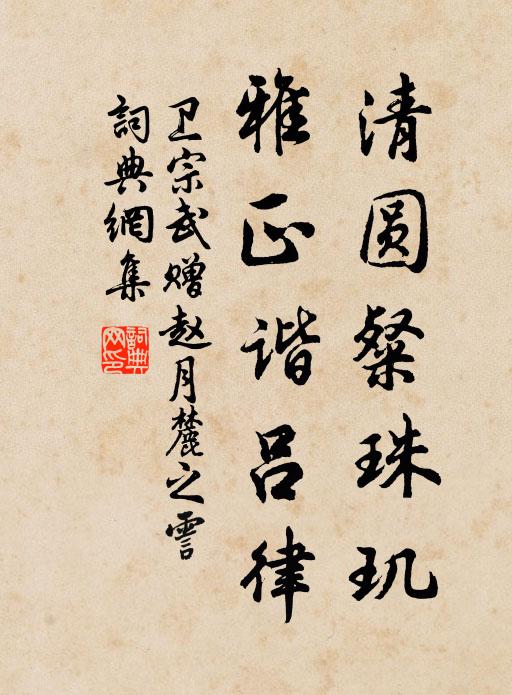 清圆粲珠玑
雅正谐吕律
卫宗武赠赵月麓之霅
詞典網集
詞典网印